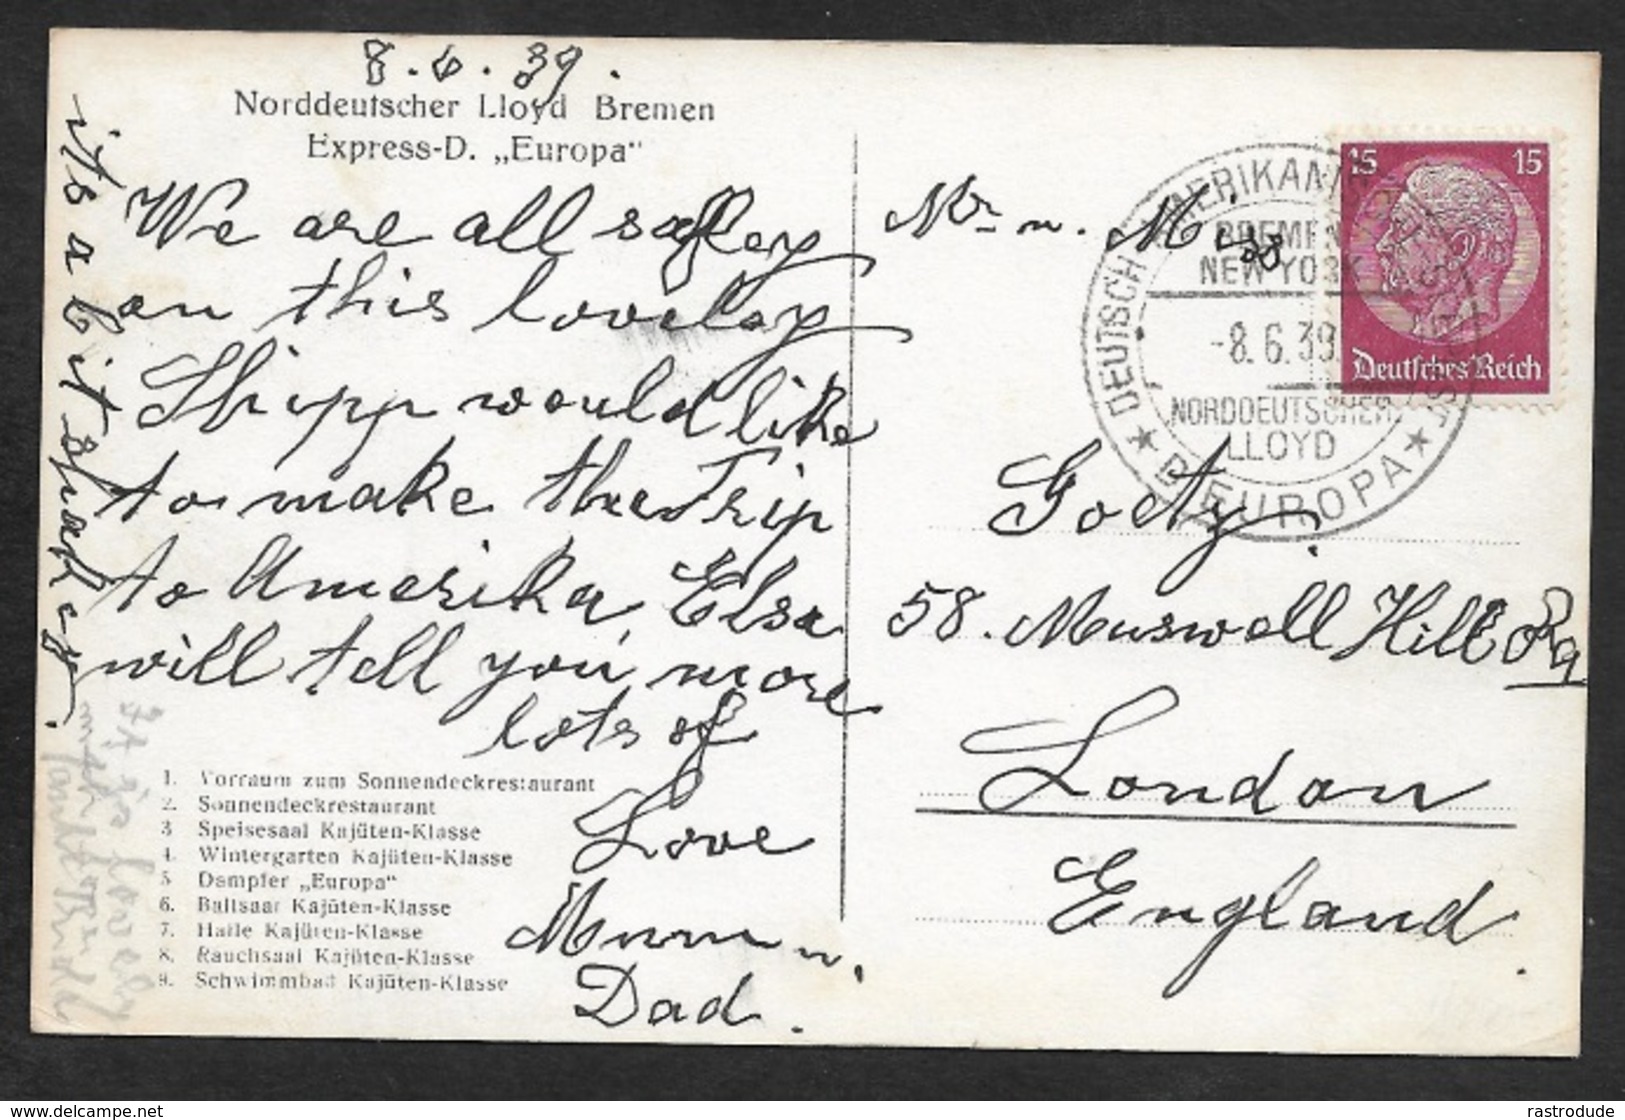 8.6.39.
Norddeutscher Lloyd Bremen
Express-D. „Europa"
We are all safley
on this loveley
Shipp would like
to make the Trip
to Amerika, Elsa
will tell you more
lots of
Love
Mum u.
Dad.
its a bit shakey.
1. Vorraum zum Sonnendeckrestaurant
2. Sonnendeckrestaurant
3 Speisesaal Kajüten-Klasse
4. Wintergarten Kajüten-Klasse
5 Dampfer „Europa"
6. Ballsaal Kajüten-Klasse
7. Halle Kajüten-Klasse
8. Rauchsaal Kajüten-Klasse
9. Schwimmbad Kajüten-Klasse
It is lovely
Mr u. Miss
Goetz.
58. Muswell Hill Rd
London
England.
15 15
Deutsches Reich
DEUTSCH-AMERIKANISCHE
BREMEN
NEW YORK
-8.6.39.
NORDDEUTSCHER
LLOYD
★ D. EUROPA ★
www.delcampe.net
rastrodude